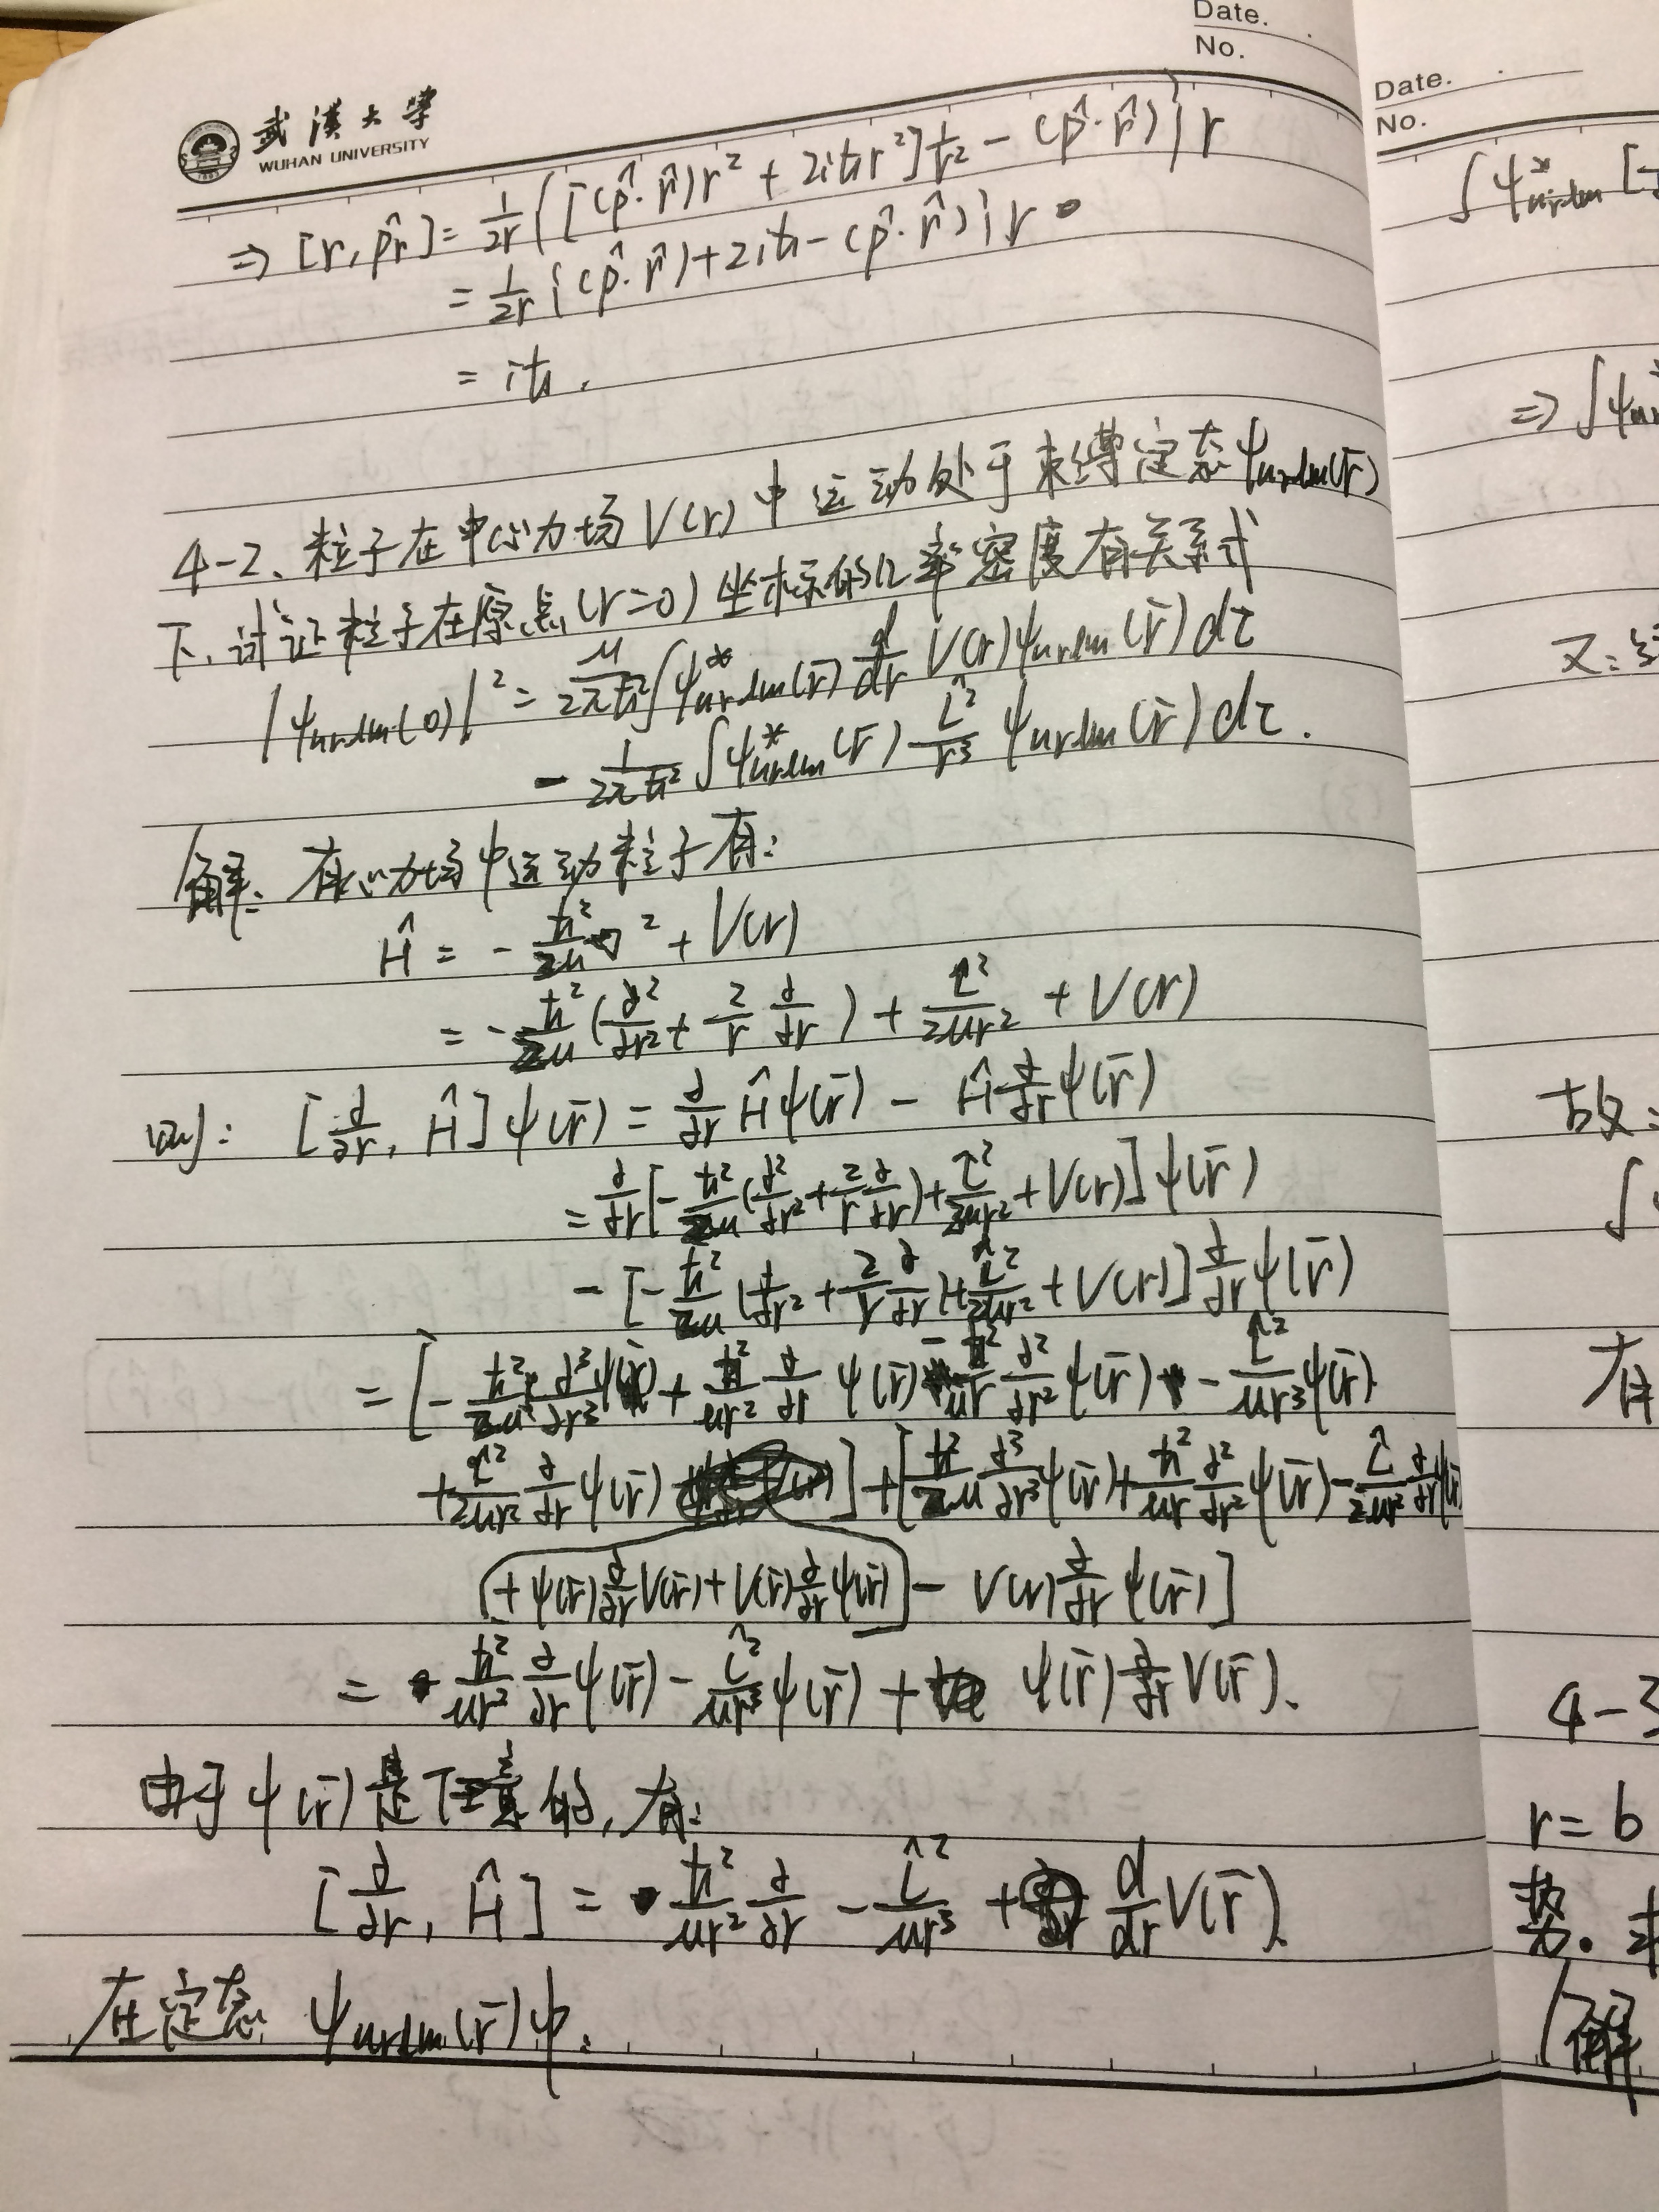 Date.
No.
武漢大學
WUHAN UNIVERSITY
⇒ [r, p̂r] = 1/2r {[(p̂·r̂)r² + 2iħr²]1/r² − (p̂·r̂)}r
= 1/2r {(p̂·r̂)+2iħ−(p̂·r̂)}r
= iħ.
4-2、粒子在中心力场V(r)中运动处于束缚定态ψnrlm(r̄)
下，试证粒子在原点(r=0)坐标的几率密度有关系式
|ψnrlm(0)|² = μ/2πħ² ∫ψ*nrlm(r̄) d/dr V(r)ψnrlm(r̄)dτ
− 1/2πħ² ∫ψ*nrlm(r̄) L̂²/r³ ψnrlm(r̄)dτ.
解：有心力场中运动粒子有：
Ĥ = −ħ²/2μ ∇² + V(r)
= −ħ²/2μ (∂²/∂r² + 2/r ∂/∂r) + L̂²/2μr² + V(r)
则： [∂/∂r, Ĥ]ψ(r̄) = ∂/∂r Ĥψ(r̄) − Ĥ∂/∂r ψ(r̄)
= ∂/∂r[−ħ²/2μ(∂²/∂r²+2/r ∂/∂r)+L̂²/2μr²+V(r)]ψ(r̄)
− [−ħ²/2μ(∂/∂r²+2/r ∂/∂r)+L̂²/2μr²+V(r)]∂/∂r ψ(r̄)
= [−ħ²/2μ ∂³/∂r³ψ(r̄) + ħ²/μr² ∂/∂r ψ(r̄) − ħ²/μr ∂²/∂r² ψ(r̄) − L̂²/μr³ ψ(r̄)
+ L̂²/2μr² ∂/∂r ψ(r̄) ] + [ħ²/2μ ∂³/∂r³ψ(r̄)+ħ²/μr ∂²/∂r²ψ(r̄)−L̂/2μr² ∂/∂rψ(r̄)
+ ψ(r̄)∂/∂r V(r̄)+V(r̄)∂/∂r ψ(r̄) − V(r)∂/∂r ψ(r̄)]
= ħ²/μr² ∂/∂r ψ(r̄) − L̂²/μr³ ψ(r̄) + ψ(r̄)∂/∂r V(r̄).
由于ψ(r̄)是任意的，有：
[∂/∂r, Ĥ] = ħ²/μr² ∂/∂r − L̂²/μr³ + d/dr V(r̄).
在定态 ψnrlm(r̄)中：
Date.
No.
∫ψ*nrlm [
⇒ ∫ψ
又：
故：
∫
在
4-3
r=b
势。求
解